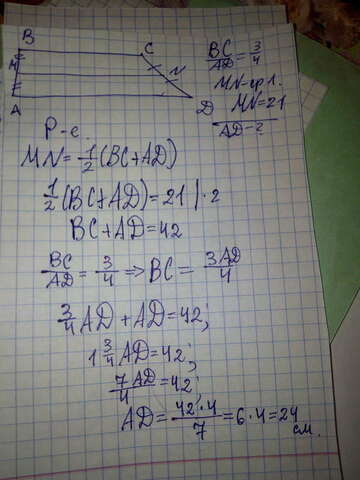 B
C
M
N
A
D
BC/AD = 3/4
MN-ср.л.
MN=21
AD-?
Р-е.
MN = 1/2 (BC+AD)
1/2 (BC+AD) = 21 | · 2
BC+AD=42
BC/AD = 3/4 => BC = 3AD/4
3/4 AD + AD = 42;
1 3/4 AD = 42;
7AD/4 = 42;
AD = 42·4/7 = 6·4 = 24 см.